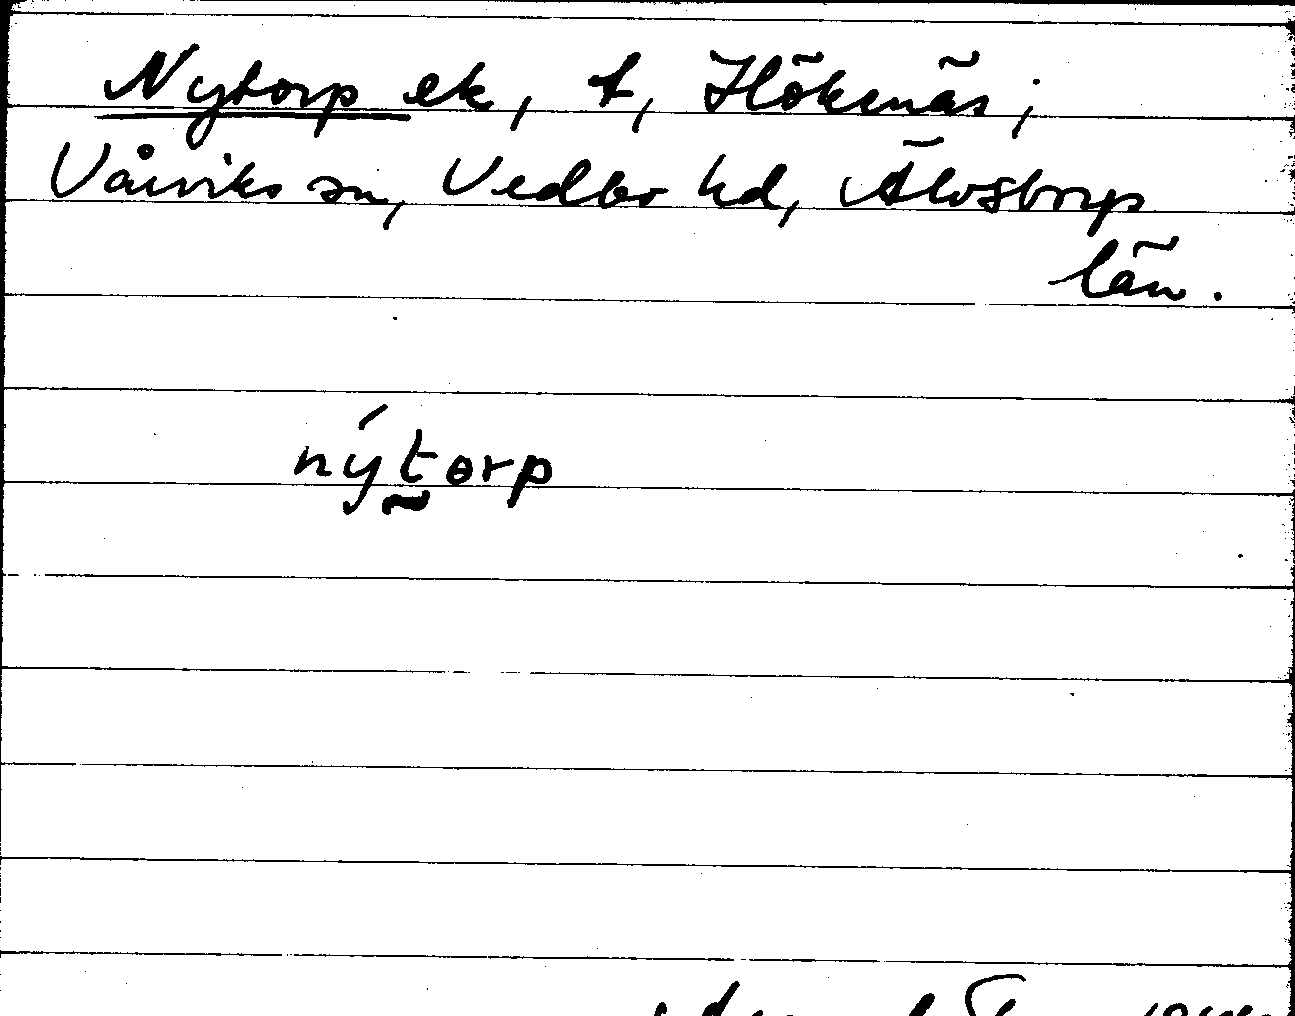 Nytorp ek, t, Höknäs;
Vårviks sn, Vedbo hd, Älvsborgs
län.
nýtorp